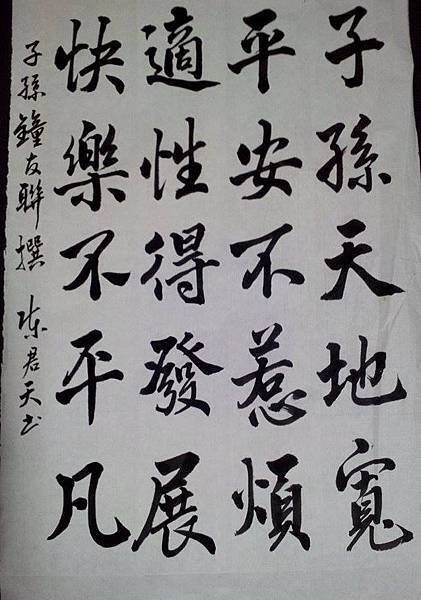 子孫天地寬
平安不惹煩
適性得發展
快樂不平凡
子孫鐘友聯撰 陳君天书